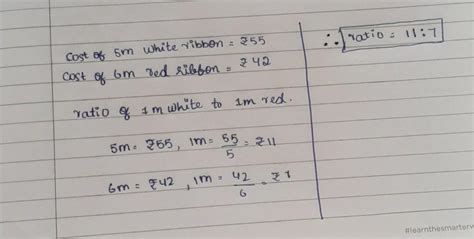 cost of 5m white ribbon = ₹55
cost of 6m red ribbon = ₹42
ratio of 1m white to 1m red.
5m = ₹55, 1m = 55/5 = ₹11
6m = ₹42, 1m = 42/6 = ₹7
∴ ratio = 11:7
#learnthesmarterw